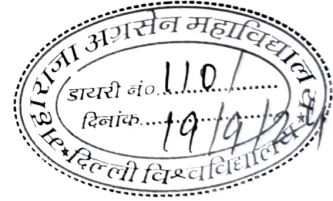 महाराजा अग्रसेन महाविद्यालय
डायरी नं० 1101
दिनांक 19/9/24
दिल्ली विश्वविद्यालय